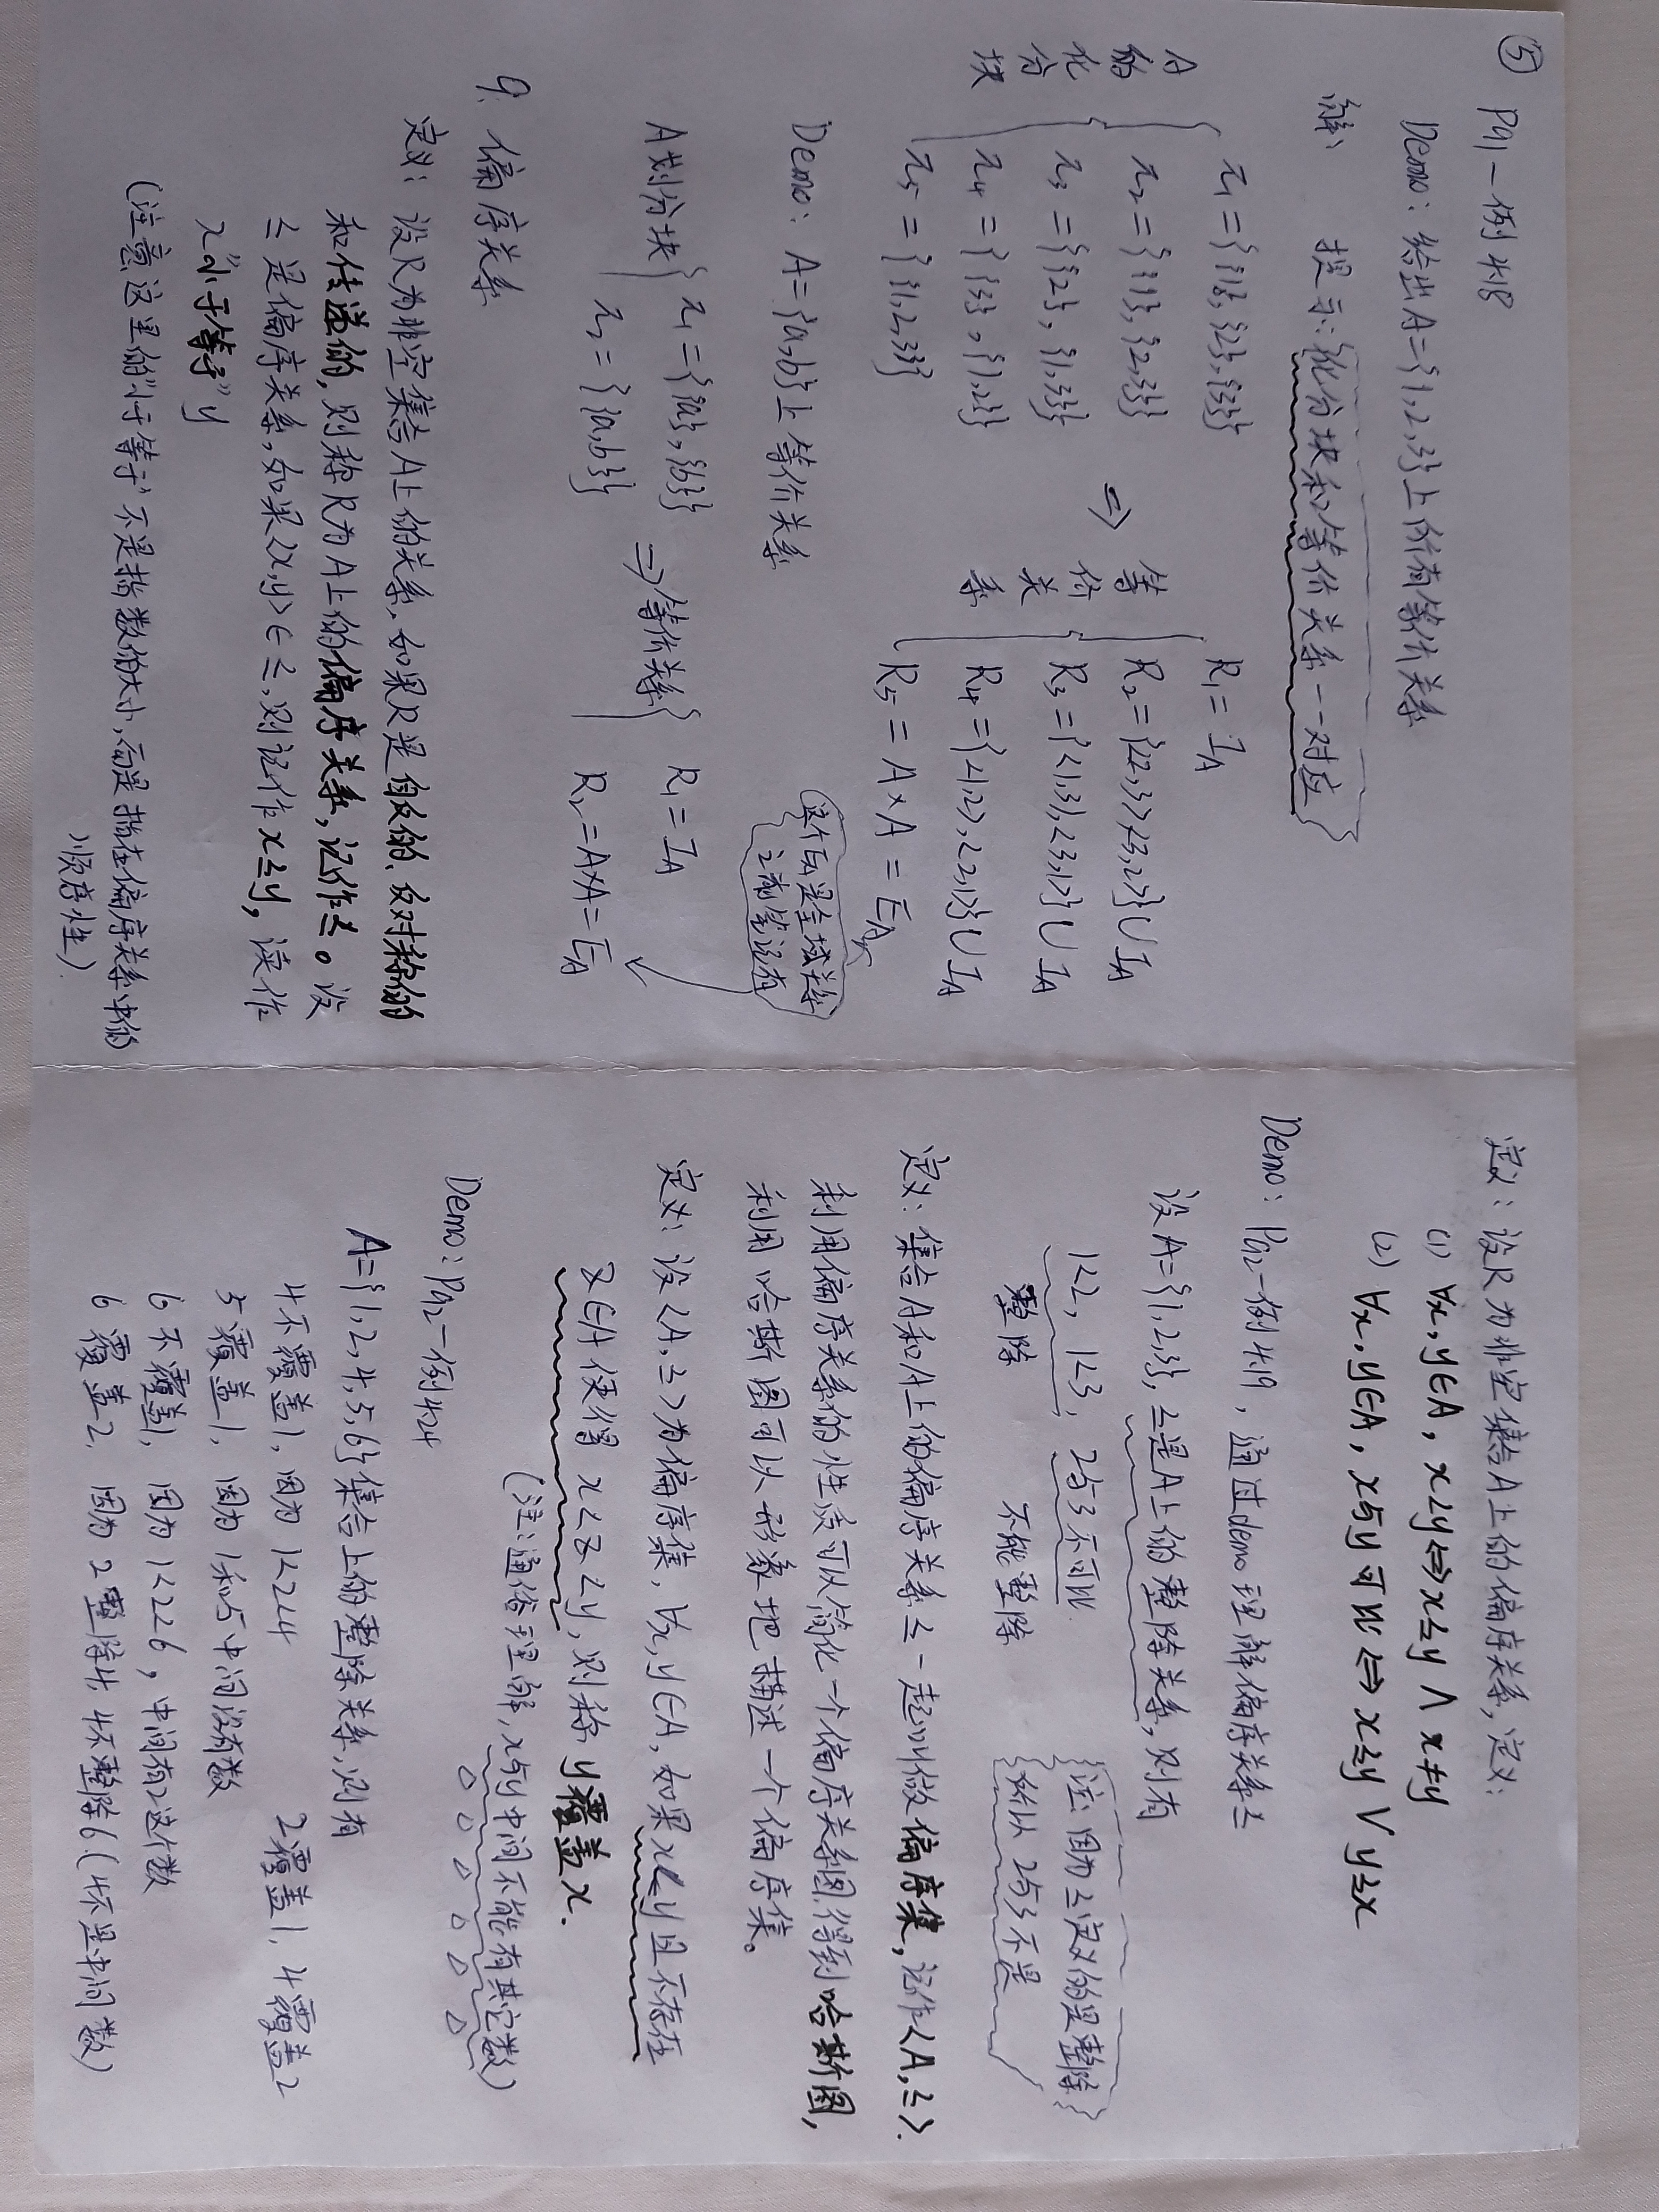 ⑤
P91-例4.18
Demo: 给出A={1,2,3}上所有等价关系
解: 提示: 化分块和等价关系一一对应
A的化分块
π₁={{1},{2},{3}}
π₂={{1},{2,3}}
π₃={{2},{1,3}}
π₄={{3},{1,2}}
π₅={{1,2,3}}
⇒ 等价关系
R₁=I_A
R₂={<2,3>,<3,2>}∪I_A
R₃={<1,3>,<3,1>}∪I_A
R₄={<1,2>,<2,1>}∪I_A
R₅=A×A=E_A
这个E_A是全域关系
之前笔记有
Demo: A={a,b}上等价关系
A划分块
π₁={{a},{b}}
π₂={{a,b}}
⇒等价关系
R₁=I_A
R₂=A×A=E_A
9. 偏序关系
定义: 设R为非空集合A上的关系,如果R是自反的、反对称的
和传递的,则称R为A上的偏序关系,记作≤。设
≤是偏序关系,如果<x,y>∈≤,则记作x≤y,读作
x“小于等于”y
(注意这里的“小于等于”不是指数的大小,而是指在偏序关系中的
顺序性).
定义: 设R为非空集合A上的偏序关系,定义:
(1) ∀x,y∈A, x<y⇔x≤y∧x≠y
(2) ∀x,y∈A, x与y可比⇔x≤y∨y≤x
Demo: P92-例4.19, 通过demo理解偏序关系≤
设A={1,2,3},≤是A上的整除关系,则有
1<2, 1<3, 2与3不可比.
整除 不能整除
注:因为≤定义的是整除
所以2与3不是
定义: 集合A和A上的偏序关系≤一起叫做偏序集,记作<A,≤>.
利用偏序关系的性质可以简化一个偏序关系图.得到哈斯图,
利用哈斯图可以形象地描述一个偏序集。
定义: 设<A,≤>为偏序集,∀x,y∈A,如果x<y且不存在
z∈A使得x<z<y,则称y覆盖x.
(注:通俗理解,x与y中间不能有其它数)
Demo: P92-例4.24
A={1,2,4,5,6}集合上的整除关系,则有
4不覆盖1,因为1<2<4 2覆盖1,4覆盖2
5覆盖1, 因为1和5中间没有数
6不覆盖1, 因为1<2<6, 中间有2这个数
6覆盖2, 因为2整除4,4不整除6.(4不是中间数)